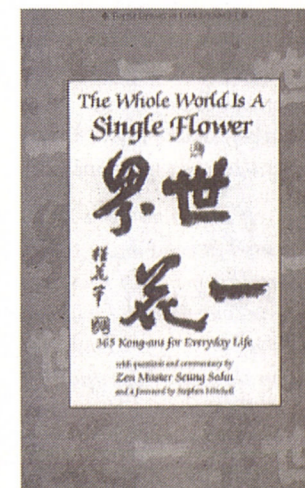 The Whole World Is A
Single Flower
世界
一花
365 Kong-ans for Everyday Life
with questions and commentary by
Zen Master Seung Sahn
and a foreword by Stephen Mitchell